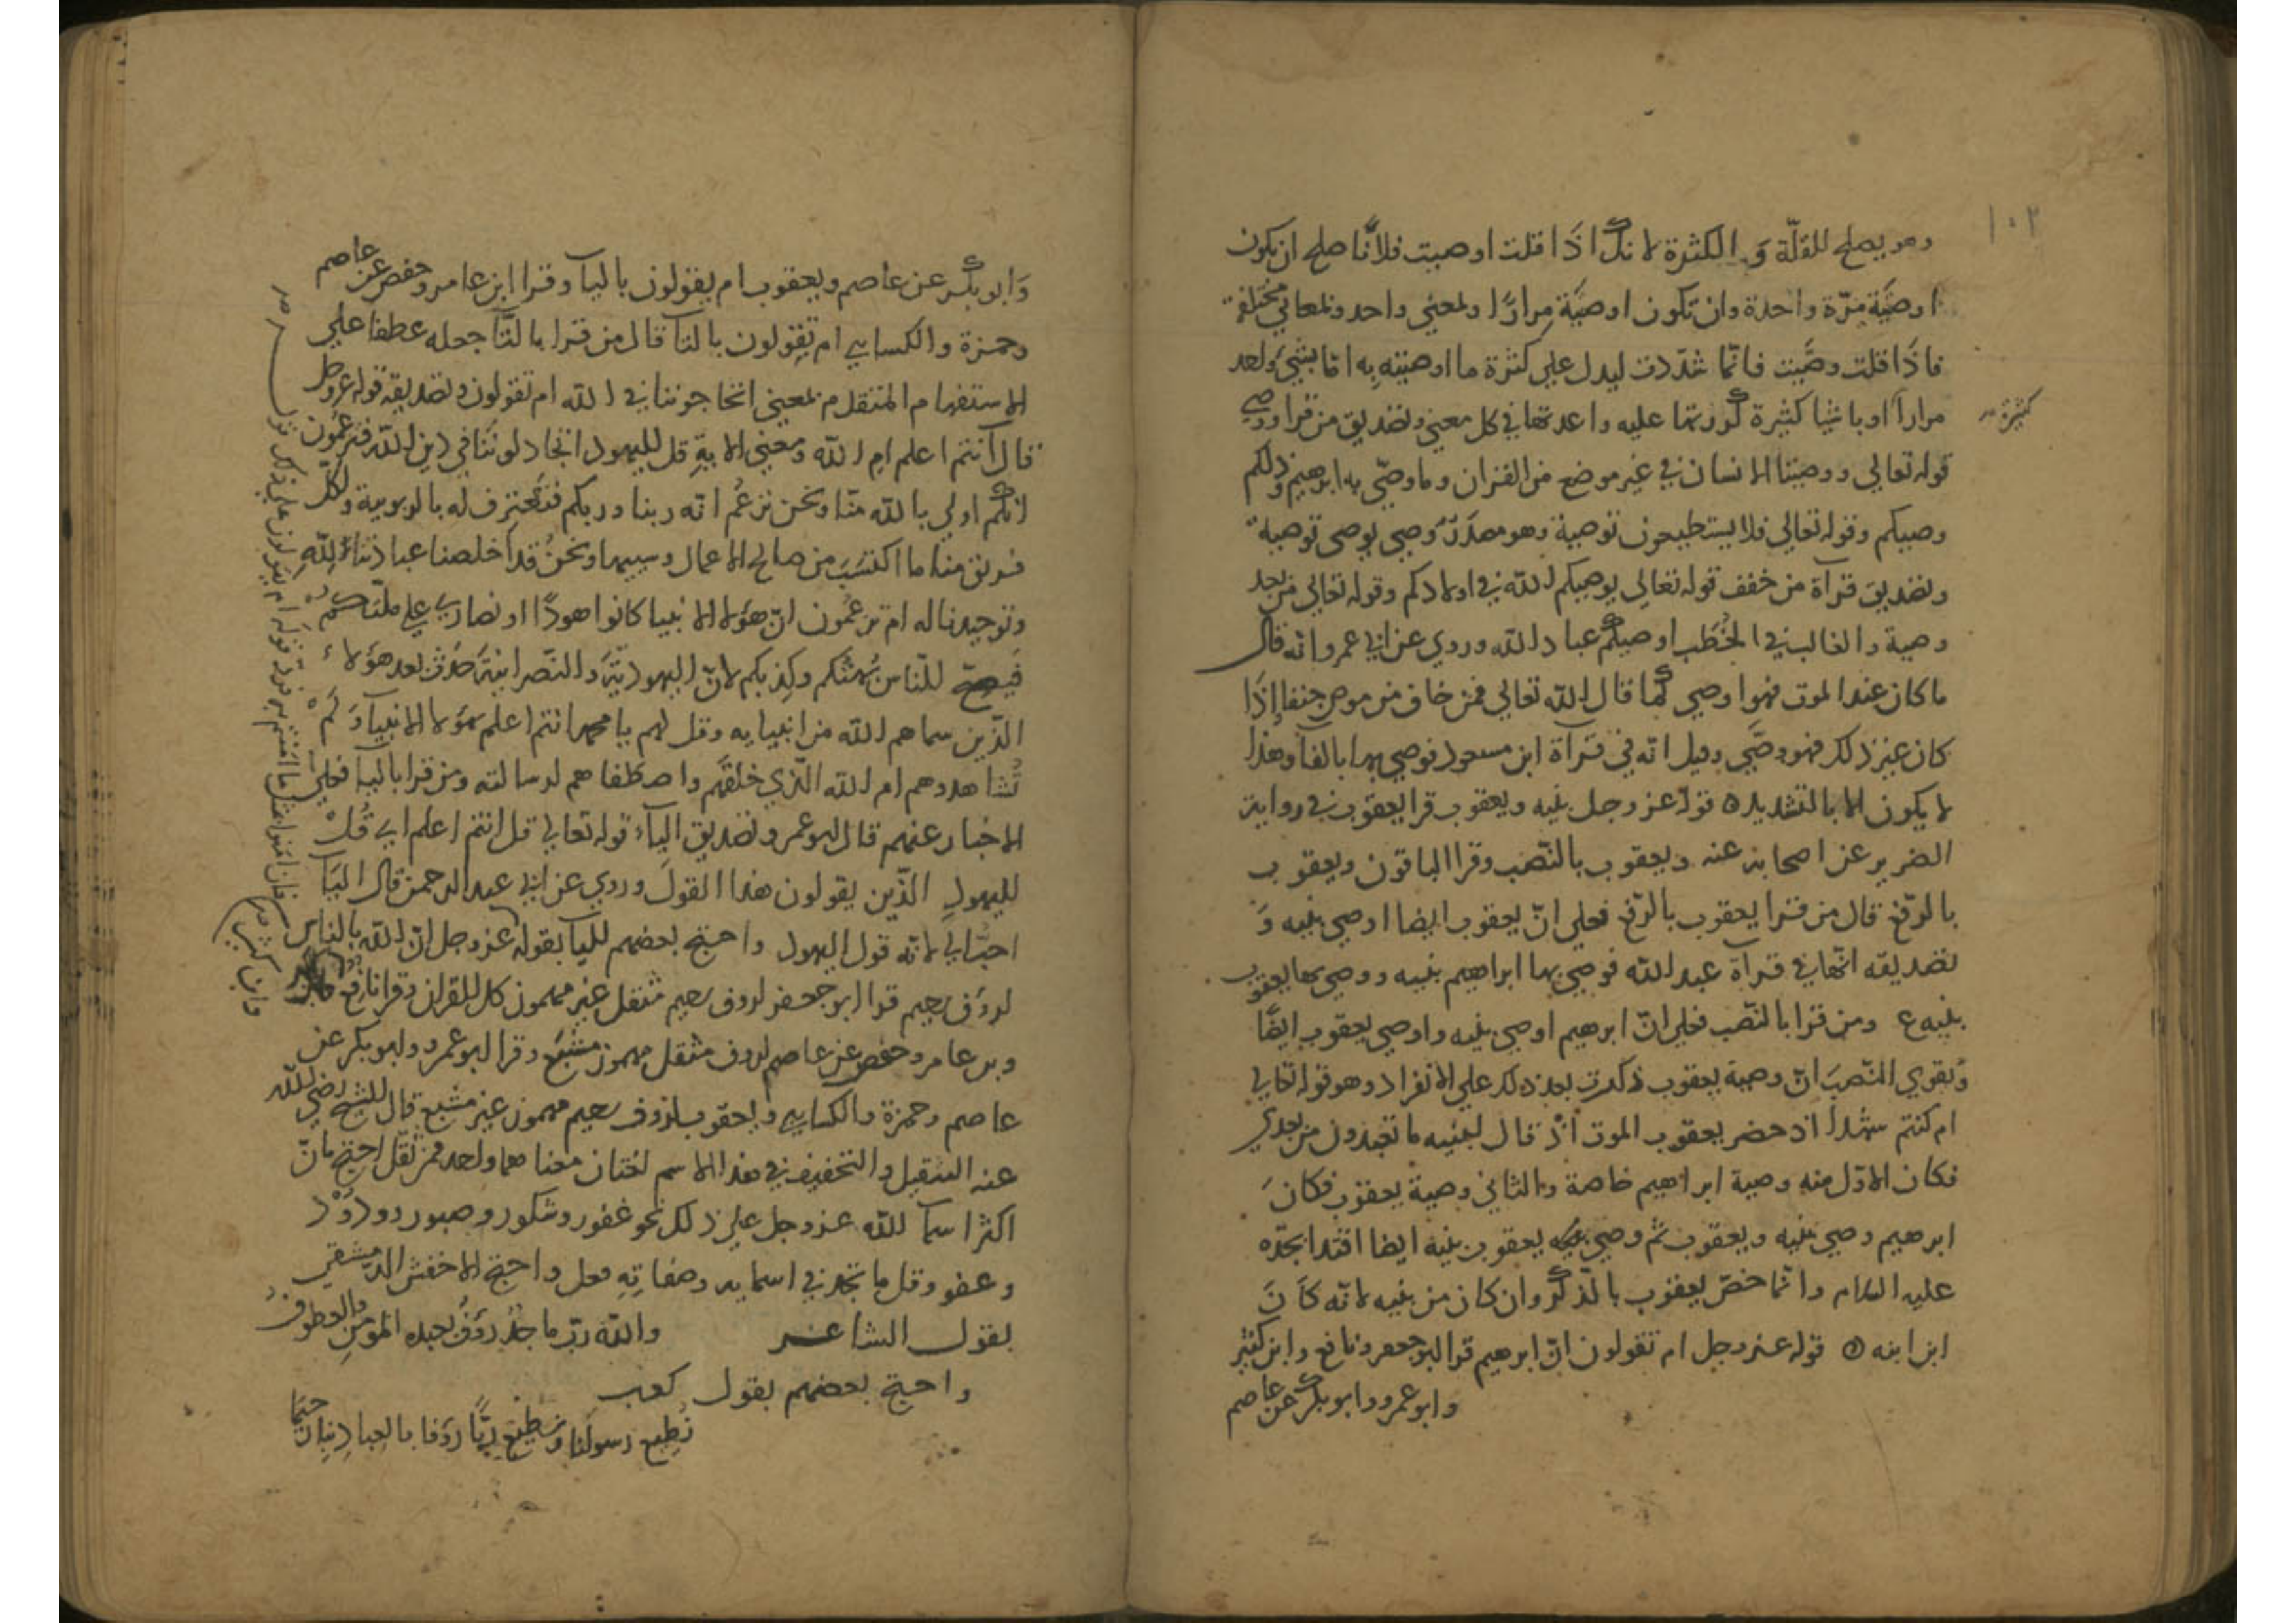 ١٠٢
وهو يصلح للقلّة وَ الكثرة لانك اذَا قلت اوصيت فلانًا صلح ان يكون
اوصيَة مرّة واحدة وان تكون اوصيَة مرارًا ولمعني واحد ولمعاني مختلفة
فاذَا قلت وصَّيت فانّما شدّدت ليدل علي كثرة ما اوصيته به امّا بشيَ ولحد
مرارًا او باشيا كثيرة كررتها عليه واعدتها في كل معني وتصديق من قرا ووصي
كثيرة
قوله تعالي ووصينا الانسان في غير موضع من القران وما وصّي به ابرهيم وذلكم
وصيكم وقوله تعالي فلا يستطيعون توصية وهو مصدر وصي يوصي توصية
وتصديق قرآة من خفف قوله تعالي يوصيكم الله في اولادكم وقوله تعالي من بعد
وصية والغالب في الخُطَب اوصيكم عباد الله وروي عن ابي عمرو انه قال
ما كان عند الموت فهو اوصي كما قال الله تعالي فمن خاف من موص جنفا إذَا
كان غير ذلك فهو وصَّي وقيل انه في قرآة ابن مسعود فوصي بها بالفآ وهذا
لا يكون الا بالتشديد ه قوله عز وجل بنيه ويعقوب قرا يعقوب في رواية
الضرير عن اصحابه عنه ويعقوب بالنّصب وقرا الباقون ويعقوب
بالرّفع قال من قرا يعقوب بالرّفع فعلي انّ يعقوب ايضا اوصي بنيه وَ
تصديقه انّها في قرآة عبد الله فوصي بها ابراهيم بنيه ووصي بها يعقوب
بنيه ع ومن قرا بالنّصب فعلي انّ ابرهيم اوصي بنيه واوصي يعقوب ايضًا
وَيقوي النّصبَ انّ وصية يعقوب ذكرت بعد ذلك علي الانفراد وهو قوله تعالي
ام كنتم شهدا اذ حضر يعقوب الموت اذْ قال لبنيه ما تعبدون من بعدي
فكان الاوّل منه وصية ابراهيم خاصة والثاني وصية يعقوب فكانَ
ابرهيم وصي بنيه ويعقوب ثم وصي يعقوب بنيه ايضا اقتدا بجدّه
عليه السلام وانّما خصّ يعقوب بالذكر وان كان من بنيه لانّه كَانَ
ابن ابنه ه قوله عز وجل ام تقولون انّ ابرهيم قرا ابو جعفر ونافع وابن كثير
وابو عمرو وابو بكر عن عاصم
وَابو بكر عن عاصم ويعقوب ام يقولون باليآ وقرا ابن عامر وحفص عن عاصم
وحمزة والكسايي ام تقولون بالتا قال من قرا بالتَّآ جعله عطفا علي
الاستفهام المتقدم بمعني اتحاجوننا في الله ام تقولون وتصديقه قوله عز وجل
قال أانتم اعلم ام الله ومعني الاية قل لليهود اتجادلونَنا في دين الله فتزعمون
انّكم اولي بالله منّا ونحن نزعُم انّه ربنا وربكم فنعترف له بالربوبية ولكل
فريق منا ما اكتسَبَ من صالح الاعمال وسييها ونحنُ قد اخلصنا عبادتنا لِلّهِ
وتوحيدنا له ام تزعُمون انّ هؤلا الانبيا كانوا هودًا او نصاري علي ملّتكُمْ
فيصحّ للنّاس بُهتُكم وكِذبكم لانّ اليهوديّةَ والنّصرانيّةَ حَدَثَت بعد هؤلاءِ
الذّين سماهم الله من انبيايه وقل لهم يا محمد انتم اعلم بهؤلا الانبيآ وَلَمْ
تُشاهدوهم ام الله الّذي خلقهُم واصطفاهم لرسالته ومن قرا باليا فعلي
الاخبار عنهم قال ابو عمرو وتصديق اليآء قوله تعالي قل انتم اعلم اي قُلْ
لليهودِ الذّين يقولون هذا القولَ وروي عن ابي عبد الرحمن قال اليَآ
احبُّ الي لانّه قول اليهود واحتج بعضهم لليآ بقوله عز وجل انّ الله بالناس
لروَف رحيم قرا ابو جعفر لروف رحيم مثقل غير مهموز كل القران وقرا نافع
وبن عامر وحفص عن عاصم لروف مثقل مهموز مشبَع وقرا ابو عمرو وابو بكر عن
عاصم وحمزة والكسايي ويعقوب لرؤف رحيم مهموز غير مشبع قال الشيخ رضي الله
عنه التثقيل والتخفيف في هذا الاسم لغتان معناهما ولحد فمن ثقّل احتج بانّ
اكثر اسمآ الله عز وجل علي ذلك نحو غفور وشكور وصبور وودُوْد
وعفو وقل ما تجد في اسمايه وصفاتِه فعل واحتج الاخفش الدمشقي
بقول الشاعر والله ربّ ماجدٌ رؤفٌ يحبه المومن والعطوفُ
واحتج بعضهم بقول كعب
نُطِيع رسولَنا ونُطِيع ربًّا رؤفا بالعباد
وابن كثير